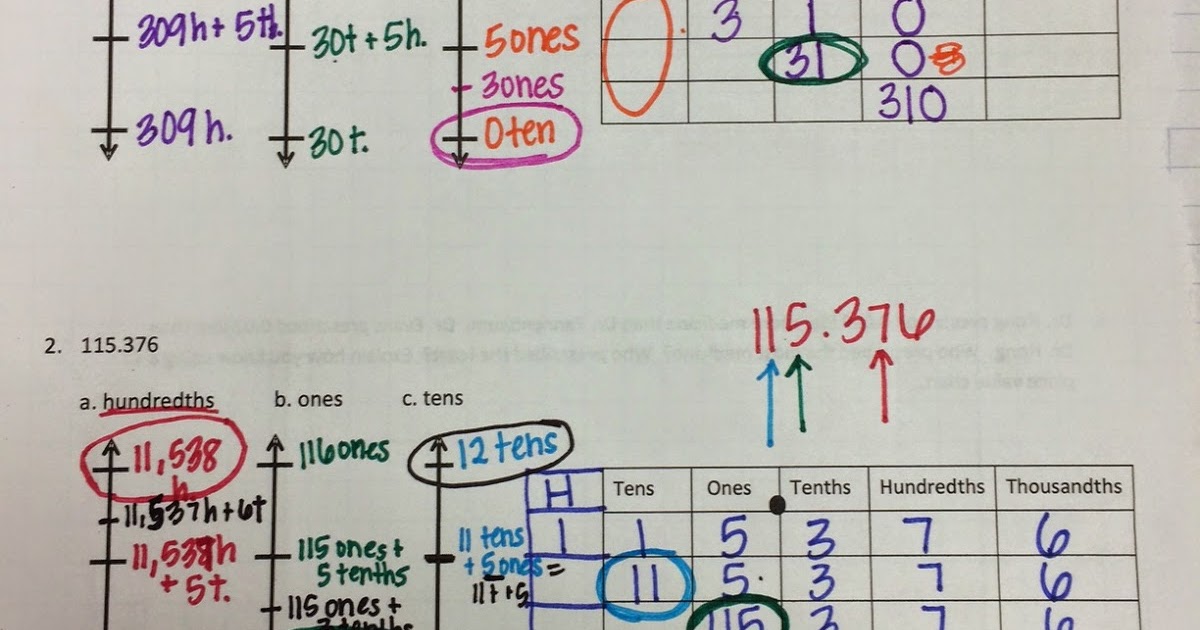 309h + 5th.
30t + 5h.
5ones
3ones
309 h.
30 t.
0 ten
3 1 0
31 0
310
115.376
2. 115.376
a. hundredths b. ones c. tens
11,538
h.
116 ones
12 tens
11,537h + 6t
11,537h
+ 5t.
115 ones +
5 tenths
115 ones +
3 tenths
11 tens
+ 5 ones =
11t + 5
H Tens Ones Tenths Hundredths Thousandths
1 1 5 3 7 6
11 5. 3 7 6
115 3 7 6